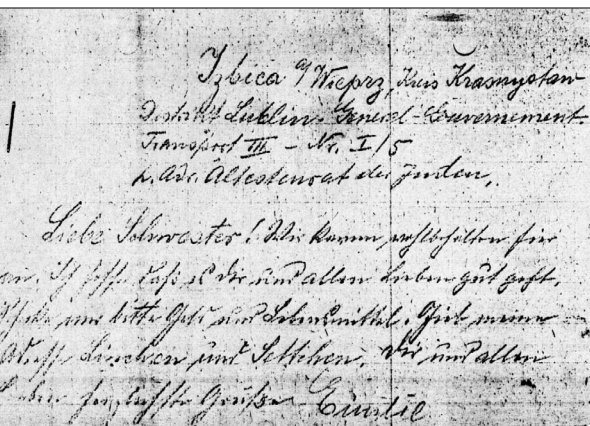 Izbica a/Wieprz, Kreis Krasnystaw
Distrikt Lublin. General-Gouvernement.
Transport III - Nr. I/5
p. Adr. Ältestenrat der Juden,
Liebe Schwester! Wir kamen wohlbehalten hier
an. Ich hoffe daß es dir und allen Lieben gut geht.
Schicke mir bitte Geld und Lebensmittel. Gib meine
Linchen und Settchen. Dir und allen
Lieben herzlichste Grüße Emilie